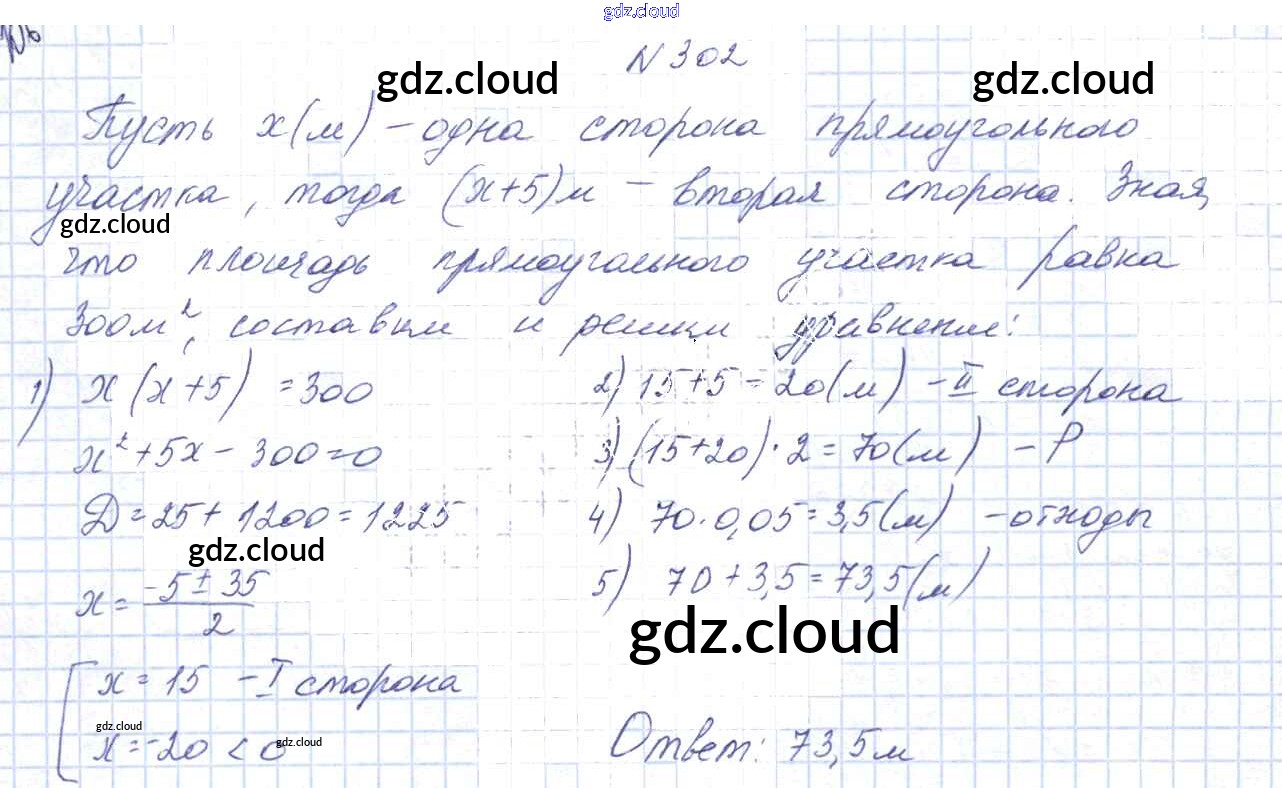 gdz.cloud
N 302
gdz.cloud gdz.cloud
Пусть x(м) – одна сторона прямоугольного
участка, тогда (x+5)м – вторая сторона. Зная,
gdz.cloud
что площадь прямоугольного участка равна
300м², составим и решим уравнение:
1) x(x+5) = 300
x² + 5x - 300 = 0
D = 25 + 1200 = 1225
gdz.cloud
x = (-5 ± 35)/2
x = 15 – I сторона
gdz.cloud
x = -20 < 0
gdz.cloud
2) 15+5 = 20(м) – II сторона
3) (15+20)·2 = 70(м) – P
4) 70·0,05 = 3,5(м) – отходы
5) 70 + 3,5 = 73,5(м)
gdz.cloud
Ответ: 73,5м